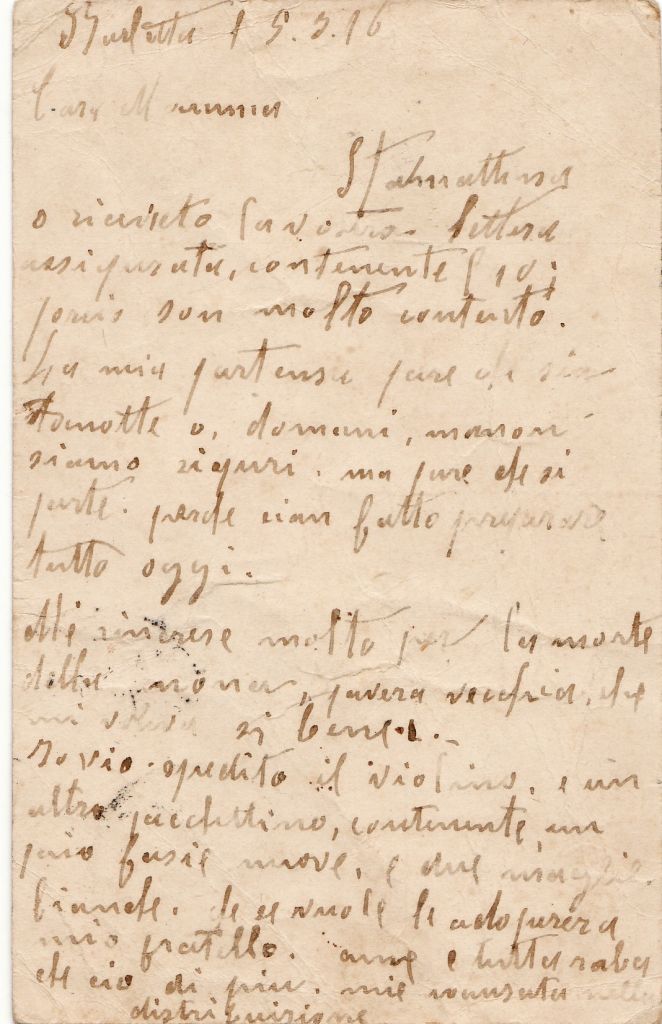 Barletta 15.3.16
Cara Mamma
Stamattina
o riciuto la vostra lettera
assigurata, contenente £ 10;
percio son molto contento.
La mia partensa pare che sia
stanotte o, domani, manon
siamo siguri. ma pare che si
parte. perche cian fatto preparare
tutto oggi.
Mi rincrese molto per la morte
della nona, pavera vecchia, che
mi voleva si bene.
Io vio spedito il violino, e un
altro pacchettino, contenente, un
paio fasie nuove, e due maglie
bianche. che se vuole le adoperera
mio fratello. ame e tutta roba
che cio di piu. mie vansata nella
distribuisione